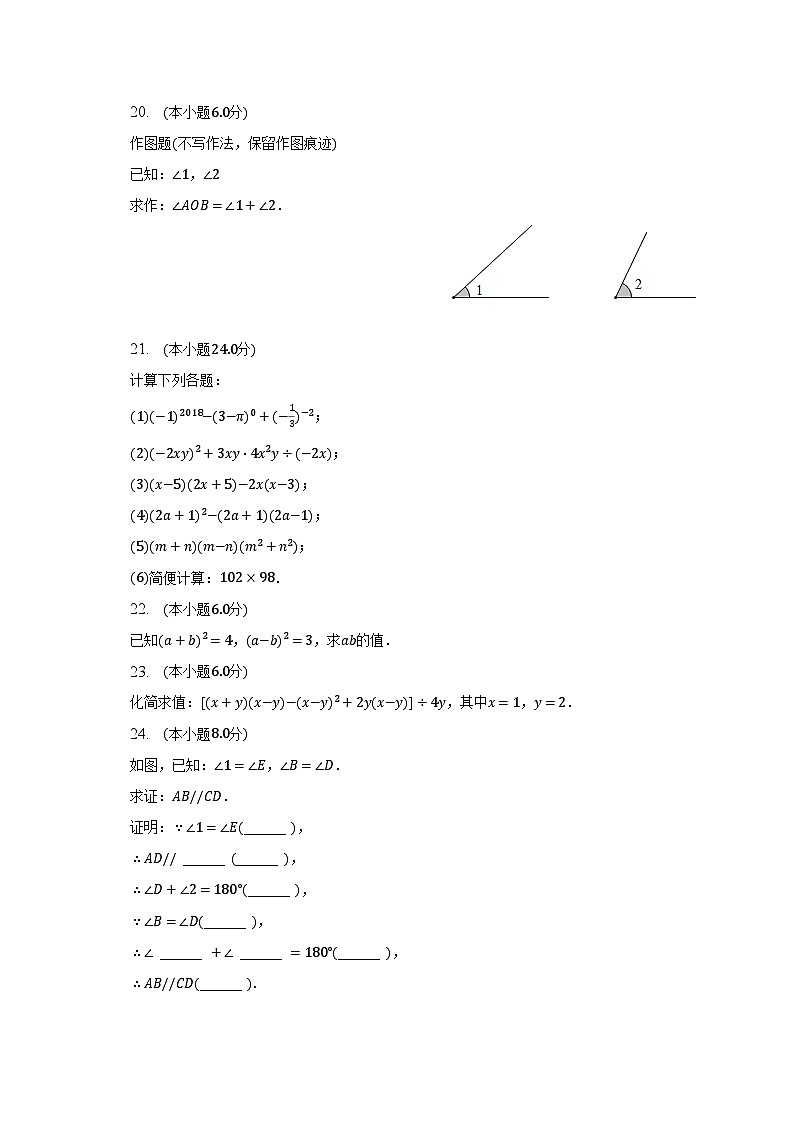 20. (本小题6.0分)
作图题(不写作法，保留作图痕迹)
已知：∠1，∠2
求作：∠AOB=∠1+∠2．
1
2
21. (本小题24.0分)
计算下列各题：
(1)(−1)²⁰¹⁸−(3−π)⁰+(−1/3)⁻²；
(2)(−2xy)²+3xy⋅4x²y÷(−2x)；
(3)(x−5)(2x+5)−2x(x−3)；
(4)(2a+1)²−(2a+1)(2a−1)；
(5)(m+n)(m−n)(m²+n²)；
(6)简便计算：102×98．
22. (本小题6.0分)
已知(a+b)²=4，(a−b)²=3，求ab的值．
23. (本小题6.0分)
化简求值：[(x+y)(x−y)−(x−y)²+2y(x−y)]÷4y，其中x=1，y=2．
24. (本小题8.0分)
如图，已知：∠1=∠E，∠B=∠D．
求证：AB//CD．
证明：∵∠1=∠E(______ )，
∴AD// ______ (______ )，
∴∠D+∠2=180°(______ )，
∵∠B=∠D(______ )，
∴∠ ______ +∠ ______ =180°(______ )，
∴AB//CD(______ )．